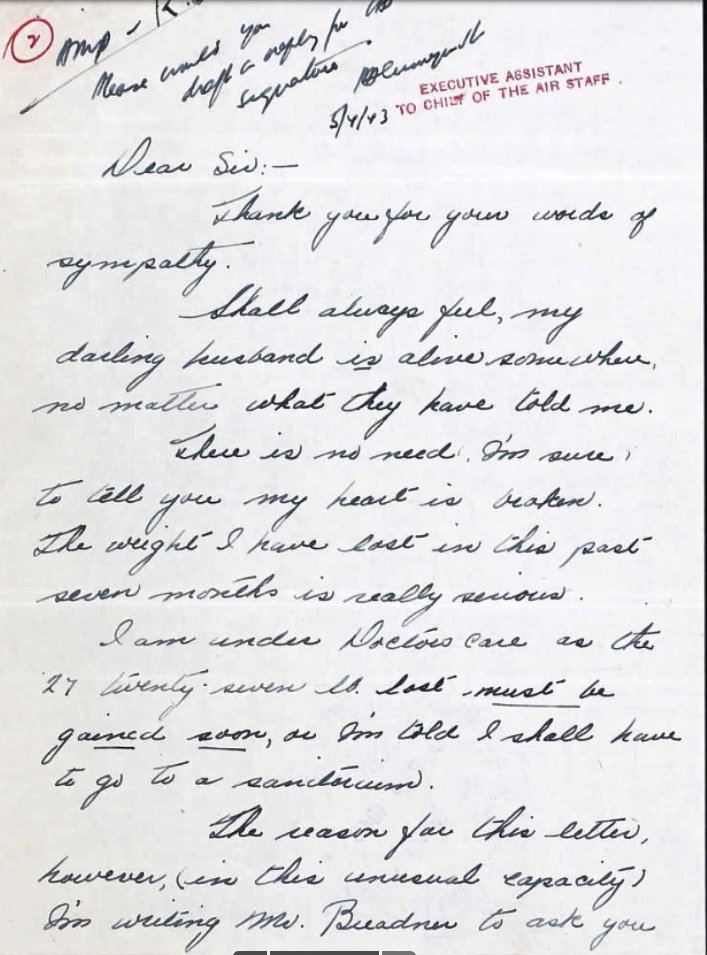 2
AMP - R.
Please would you
draft a reply for
signature.
5/4/43
EXECUTIVE ASSISTANT
TO CHIEF OF THE AIR STAFF.
Dear Sir:—
Thank you for your words of
sympathy.
Shall always feel, my
darling husband is alive somewhere,
no matter what they have told me.
There is no need, I'm sure,
to tell you my heart is broken.
The weight I have lost in this past
seven months is really serious.
I am under Doctors care as the
27 twenty-seven lb. lost must be
gained soon, or I'm told I shall have
to go to a sanitorium.
The reason for this letter,
however, (in this unusual capacity)
I'm writing Mr. Breadner to ask you